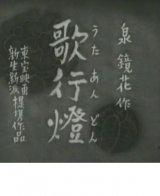 泉鏡花作
歌行燈
うたあんどん
東宝映画
新生新派 提携作品